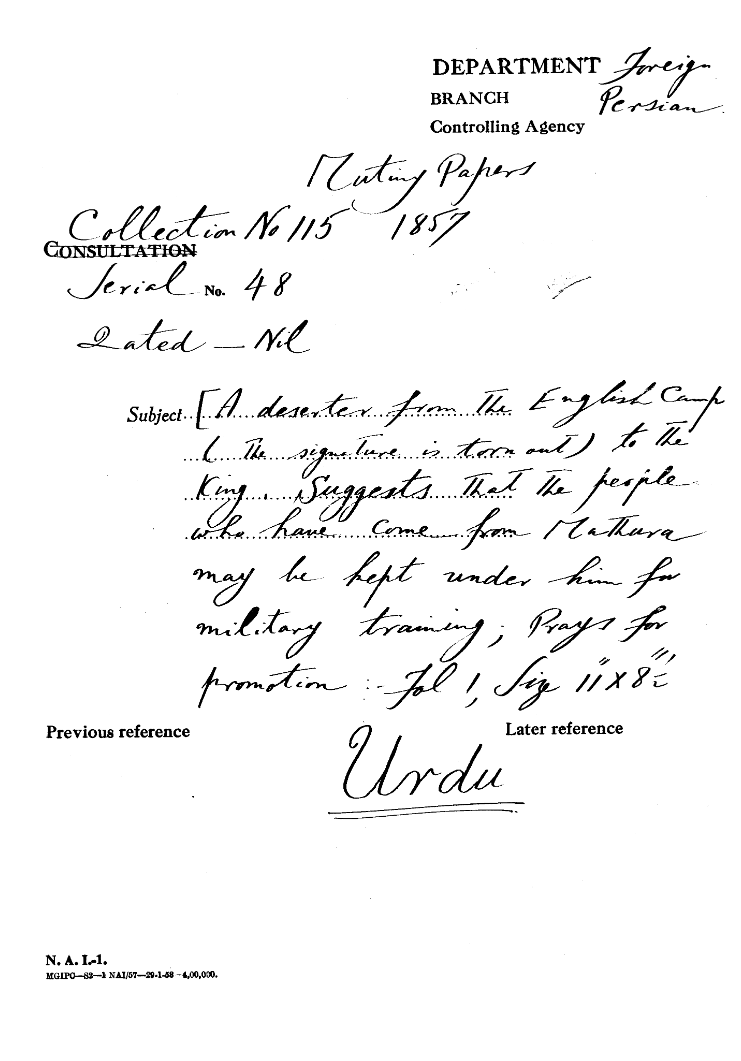 DEPARTMENT Foreign
BRANCH Persian
Controlling Agency
Mutiny Papers
Collection No 115 1857
CONSULTATION
Serial No. 48
Dated — Nil
Subject [A deserter from the English Camp
(The signature is torn out) to the
King. Suggests that the people
who have come from Mathura
may be kept under him for
military training; Prays for
promotion :- Fol 1, Size 11" X 8"
Previous reference
Later reference
Urdu
N. A. I.-1.
MGIPC—S2—1 NAI/57—29-1-58 -4,00,000.